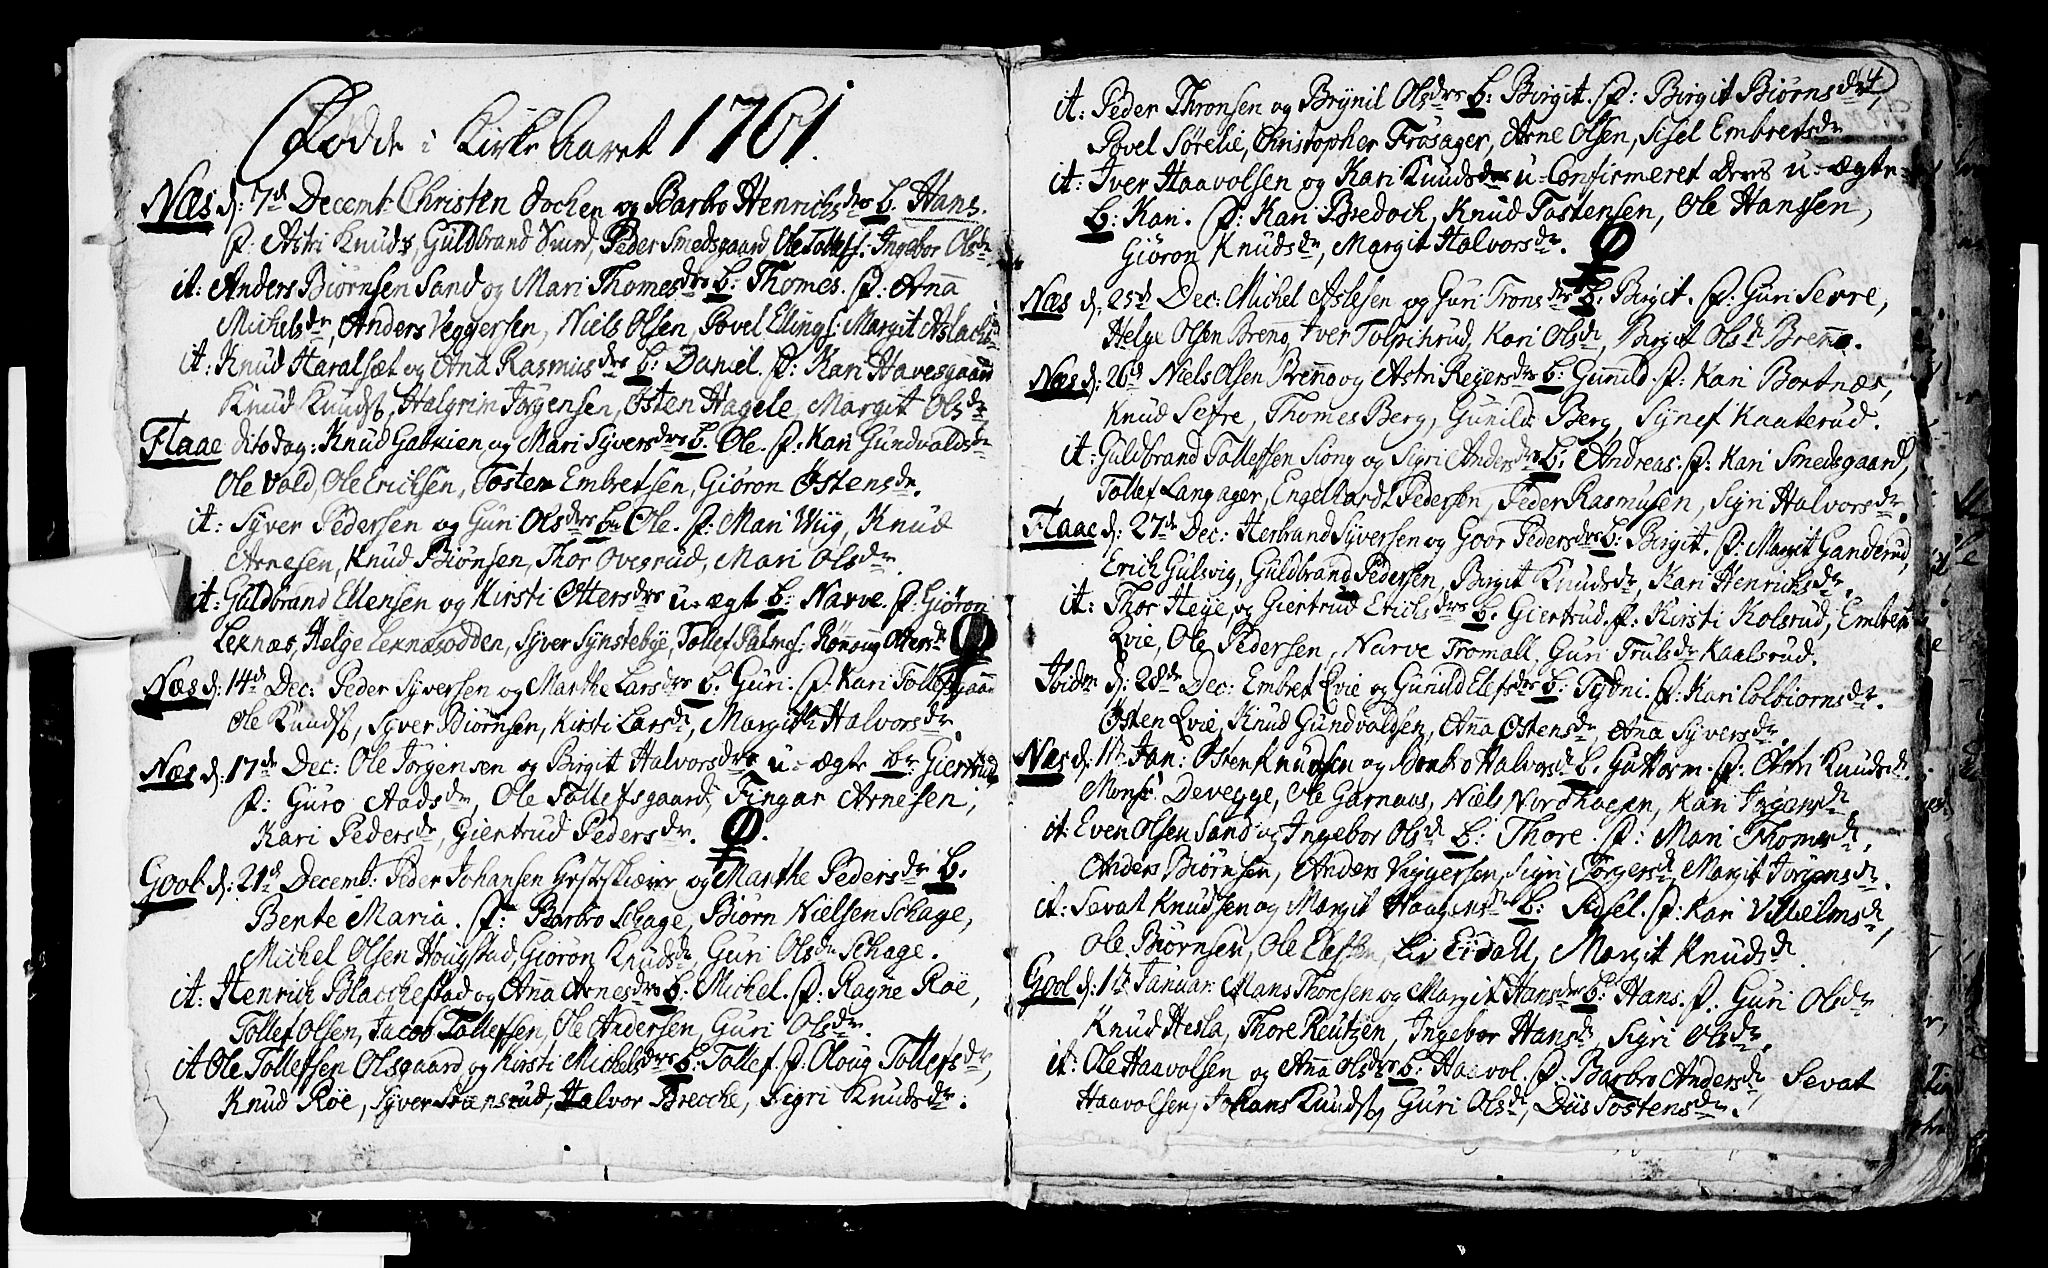 Fødde i Kirke Aaret 1761.
Næs d: 7de Decemb: Christen og Barbro Henrichsdrs B. Hans.
P. Astri Knuds, Guldbrand Peder Smedsgaard Ole Tollefs: Ingebor Olsdr
it: Anders Biørnsen Sand og Mari Thomesdrs B: Thomes. P: Anna
Michelsdr, Anders Veggersen, Niels Olsen, Povel Ellings: Margit Aslachsd
it: Knud Haralsæt og Ana Rasmusdrs B: Daniel. P: Kari Havesgaard
Knud Knuds, Halgrim Jørgensen, Østen Hagele, Margit Olsdr
Flaae dito dag: Knud Gabrien og Mari Syversdrs B: Ole. P: Kari Gundvaldsdr
Ole Vold, Ole Erichsen, Tosten Embretsen, Giøron Østensdr.
it: Syver Pedersen og Guri Olsdrs B: Ole. P: Mari Wiig, Knud
Arnesen, Knud Biønsen, Thor Ovegrud, Mari Olsdr.
it: Guldbrand Ellensen og Kirsti Ottersdrs u-ægt B: Narve. P: Giøron
Leknæs, Helge Leknæsodden, Syver Synstebye, Tollef Palmes: Rønnaug Ottersdr
Næs d: 14de Dec: Peder Syversen og Marthe Larsdrs B. Guri. P: Kari Tollefsgaard
Ole Knuds, Syver Biørnsen, Kirsti Larsdr, Margith Halvorsdr.
Næs d: 17de Dec: Ole Jørgensen og Birgit Halvorsdrs u-ægte B: Giertrud
P: Guro Aadsdr, Ole Tollefsgaard, Fingar Arnesen,
Kari Pedersdr, Giertrud Pedersdr.
Gool d: 21de Decemb: Peder Johansen og Marthe Pedersdr B.
Bente Maria. P: Barbro Schage, Biørn Nielsen Schage,
Michel Olsen Hougstad, Giøron Knudsdr, Guri Olsdr Schage.
it: Henrich Blacchestad og Ana Arnesdrs B: Michel. P: Ragne Røe,
Tollef Olsen, Jacob Tollefsen, Ole Andersen, Guri Olsdr.
it Ole Tollefsen Olsgaard og Kirsti Michelsdrs B: Tollef. P: Oloug Tollefsdr,
Knud Røe, Syver Halvor Brecche, Sigri Knudsdr.
4
it: Peder Thronsen og Brynil Olsdrs B: Birgit. P: Birgit Biørnsdr,
Povel Sørelie, Christopher Frøsager, Arne Olsen, Sisel Embretsdr
it: Iver Haavolsen og Kari Knudsdrs u-Confirmeret Deres u-ægte
B: Kari. P: Kari Bredoch, Knud Tostensen, Ole Hanssen,
Giøron Knudsdr, Margit Halvorsdr.
Næs d: 25de Dec: Michel Aslesen og Guri Tronsdrs B. Birgit. P: Guri Sevre,
Helge Olsen Breno, Iver Tolpinrud, Kari Olsdr, Birgit Olsdr Brenno.
Næs d: 26d Niels Olsen Brenno og Astri Regersdrs B: Gunnild. P: Kari Bortnæs,
Knud Sefre, Thomes Berg, Gunild Berg, Synef Kaaterud.
it: Guldbrand Tollefsen Siong og Sigri Andersdrs B: Andreas. P: Kari Smedsgaard,
Tollef Langager, Engelhardt Pedersen, Peder Rasmusen, Sigri Halvorsdr.
Flaae d: 27de Dec: Herbrand Syversen og Goor Pedersdrs B: Birgit. P: Margit Ganderud,
Erich Gulsvig, Guldbrand Pedersen, Birgit Knudsdr, Kari Henrichsdr.
it: Thor Heye, og Giertrud Erichsdrs B. Giertrud. P: Kirsti Kolsrud, Embret
Evie, Ole Pedersen, Narve Tromall. Guri Trulsdr Kaalsrud.
Ibidm d: 28de Dec: Embret Evie og Gunild Elefsdrs B: Tydni. P: Kari Colbiornsdr.
Østen Evie, Knud Gundvaldsen, Anna Ostensdr, Ana Syversdr.
Næs d: 1te Jan: Østen Knudsen og Barbro Halvorsd B. Guttorm. P: Astri Knudsdr.
Mons: Devegge, Ole Garnaas, Niels Nordhagen, Kari
it: Even Olsen Sand og Ingebor Olsd B: Thore. P: Mari Thomesdr,
Anders Biørnsen, Anders Veggersen, Sigri Torgersd, Margit Jørgensdr.
it: Sevat Knudsen og Margit Haagensdr B: Sidsel. P: Kari Vilhelmsdr,
Ole Biørnsen, Ole Liv Eidall, Margit Knudsd.
Gool d: 1te Januar: Hans Thoresen og Margit Hansdrs B: Hans. P: Guri Olsdr
Knud Hesla, Thore Reutzen, Ingebor Hansd, Sigri Olsdr.
it: Ole Haavolsen og Ana Olsdrs B: Haavol. P: Barbro Andersdr, Sevat
Haavolsen, Johans Knuds, Guri Olsd, Diis Tostensdr.